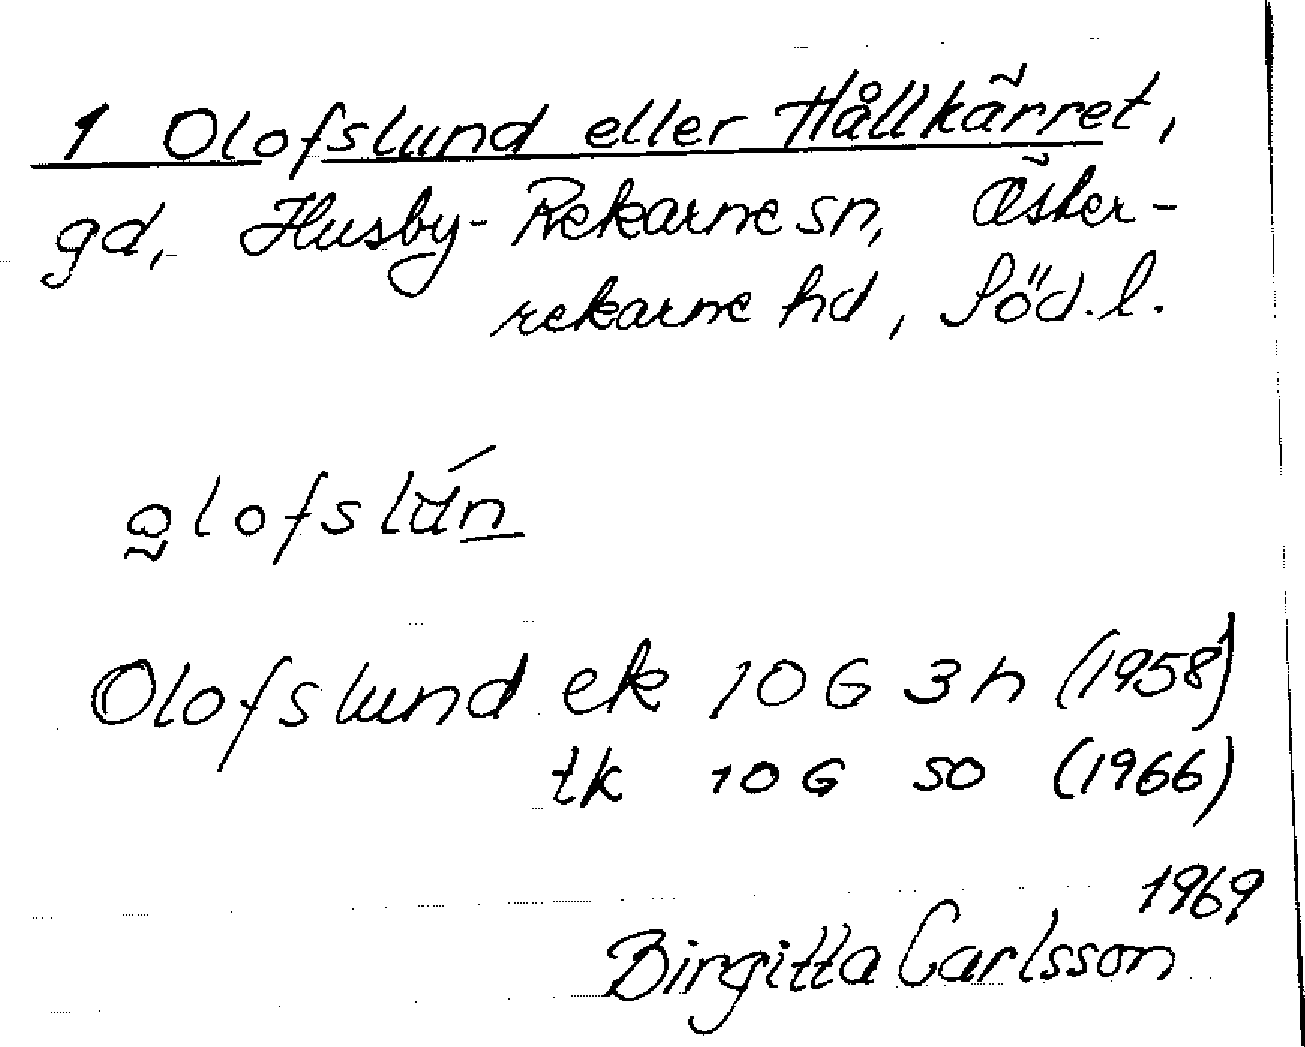 1 Olofslund eller Hållkärret,
gd, Husby-Rekarne sn, Öster-
rekarne hd, Söd. l.
o̰lofslún̲
Olofslund ek 10G 3h (1958)
tk 10G SO (1966)
1969
Birgitta Carlsson